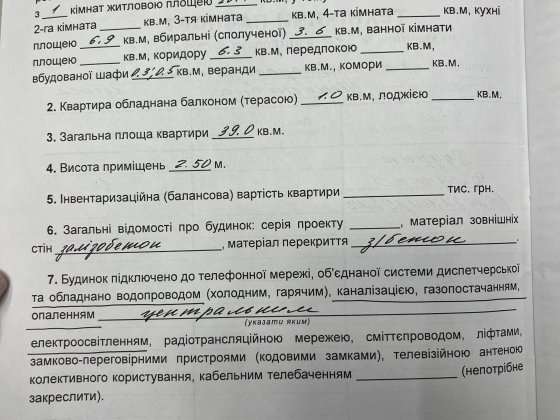 з 1 кімнат житловою площею
2-га кімната ______ кв.м, 3-тя кімната ______ кв.м, 4-та кімната ______ кв.м, кухні
площею 6.9 кв.м, вбиральні (сполученої) 3.6 кв.м, ванної кімнати
площею ______ кв.м, коридору 6.3 кв.м, передпокою ______ кв.м,
вбудованої шафи 0,3; 0,5 кв.м, веранди ______ кв.м., комори ______ кв.м.
2. Квартира обладнана балконом (терасою) 1.0 кв.м, лоджією ______ кв.м.
3. Загальна площа квартири 39.0 кв.м.
4. Висота приміщень 2.50 м.
5. Інвентаризаційна (балансова) вартість квартири ______ тис. грн.
6. Загальні відомості про будинок: серія проекту ______, матеріал зовнішніх
стін залізобетон, матеріал перекриття з/бетон.
7. Будинок підключено до телефонної мережі, об'єднаної системи диспетчерської
та обладнано водопроводом (холодним, гарячим), каналізацією, газопостачанням,
опаленням центральним
(указати яким)
електроосвітленням, радіотрансляційною мережею, сміттєпроводом, ліфтами,
замково-переговірними пристроями (кодовими замками), телевізійною антеною
колективного користування, кабельним телебаченням ______ (непотрібне
закреслити).